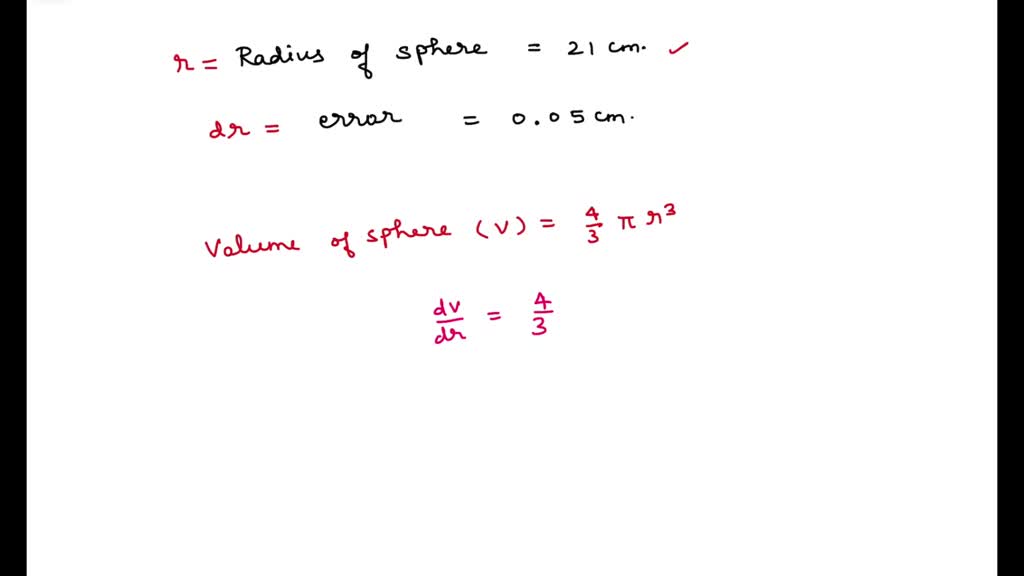 r = Radius of sphere = 21 cm. ✓
dr = error = 0.05 cm.
Volume of sphere (v) = 4/3 π r³
dv/dr = 4/3